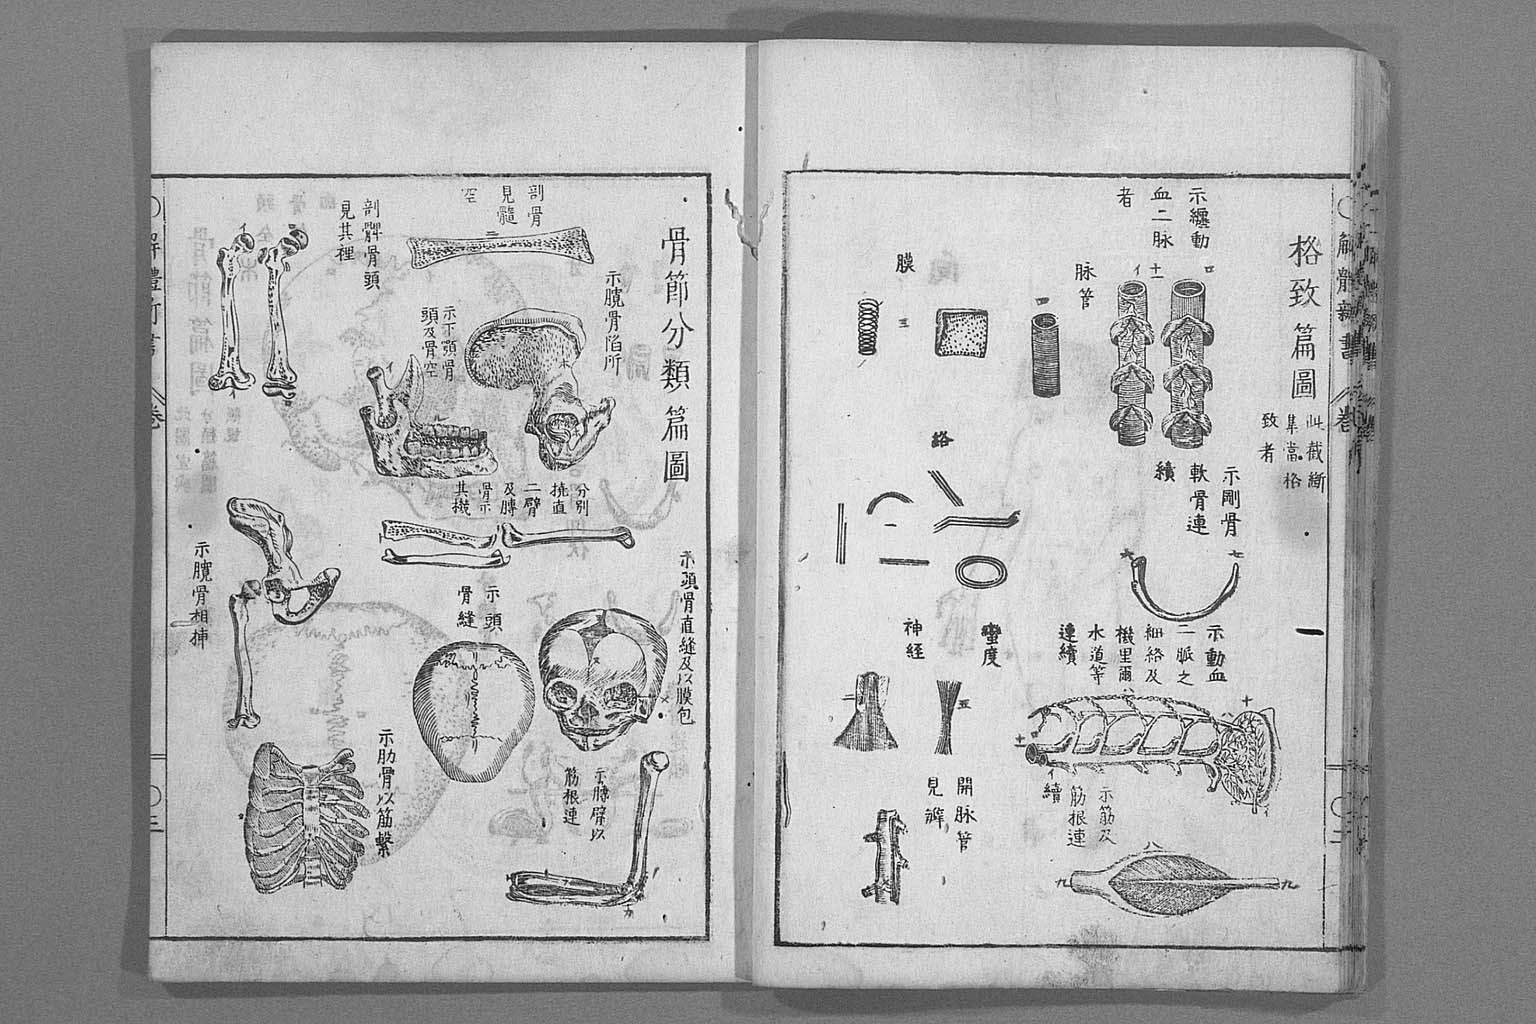 格致篇圖
此截斷
集當格
致者
示纏動
血二脉
者
脉管
膜
示剛骨
軟骨連
續
絡
示動血
二脈之
細絡及
機里爾
水道等
連續
蠻度
神経
示筋及
筋根連
續
開脉管
見瓣
骨節分類篇圖
剖骨
見髓
空
剖髀骨頭
見其裡
示臗骨陷所
示下顎骨
頭及骨空
分別
撓直
二臂
及膊
骨示
其機
示頭骨直縫及以膜包
示頭
骨縫
示臗骨相挿
示膊臂以
筋根連
示肋骨以筋繫